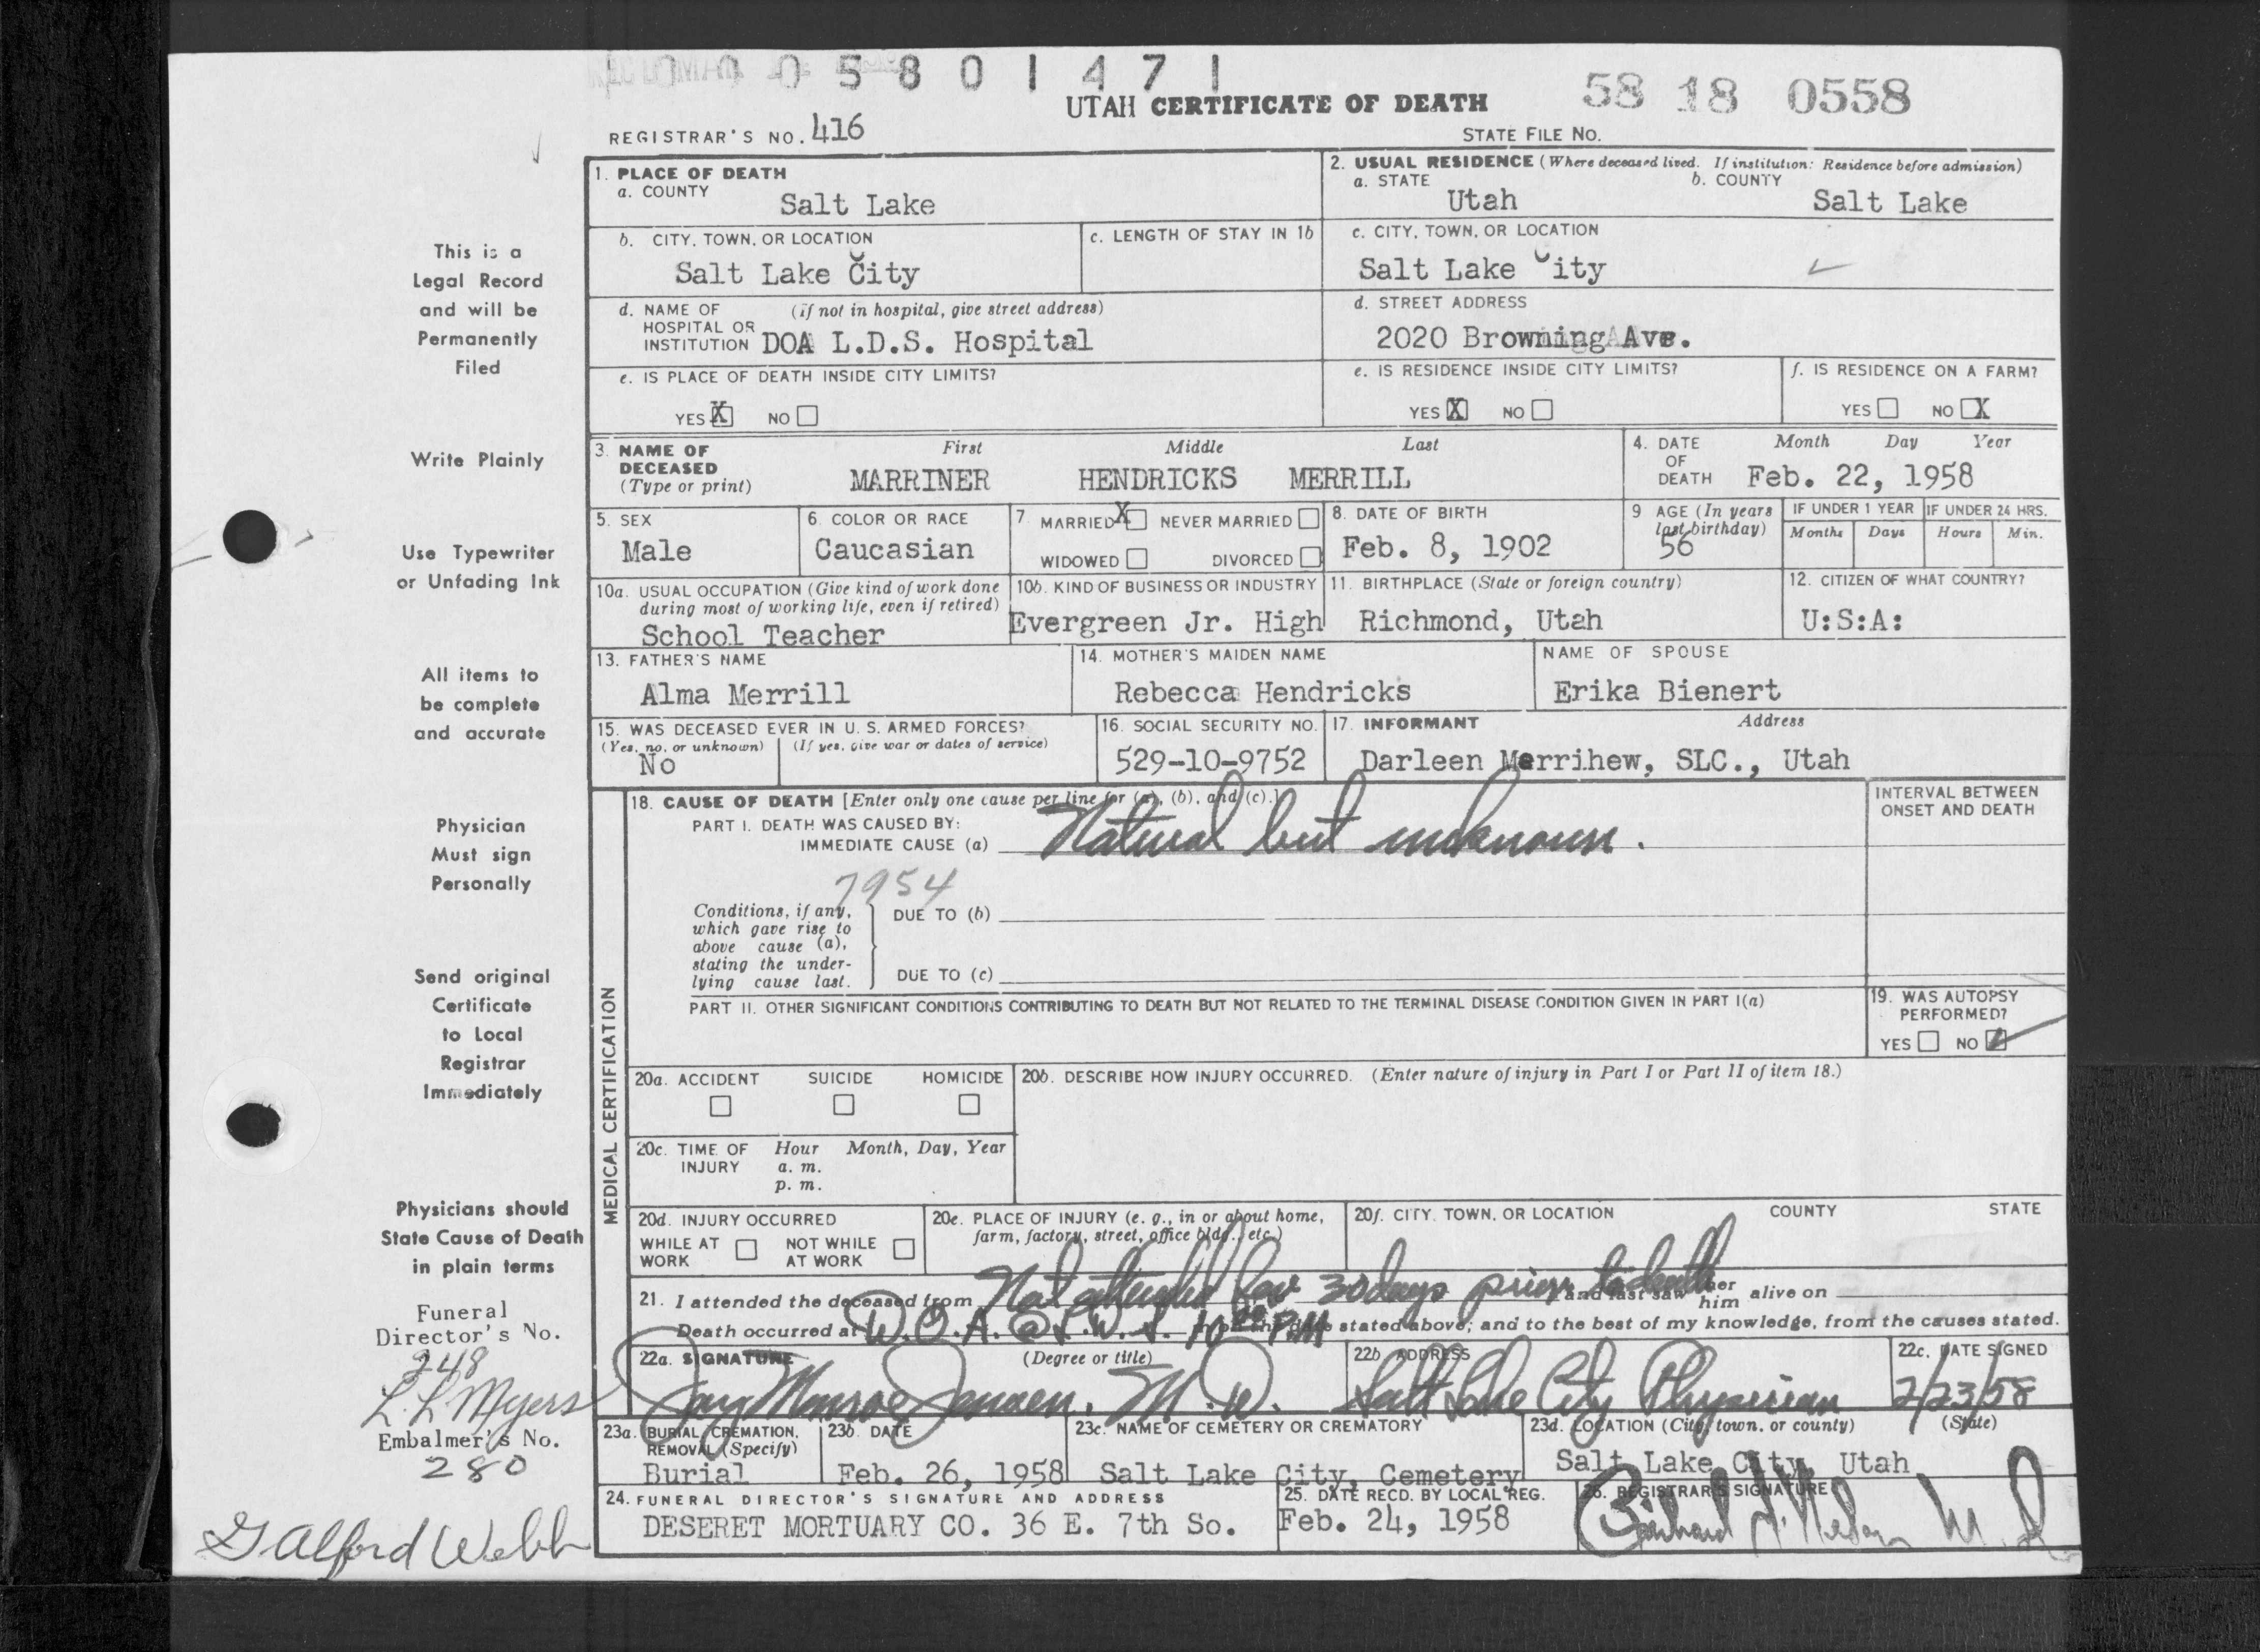 0 0 5 8 0 1 4 7 1
58 18 0558
UTAH CERTIFICATE OF DEATH
REGISTRAR'S NO. 416
STATE FILE NO.
1. PLACE OF DEATH
a. COUNTY
Salt Lake
2. USUAL RESIDENCE (Where deceased lived. If institution: Residence before admission)
a. STATE
Utah
b. COUNTY
Salt Lake
b. CITY, TOWN, OR LOCATION
Salt Lake City
c. LENGTH OF STAY IN 1b
c. CITY, TOWN, OR LOCATION
Salt Lake City
d. NAME OF HOSPITAL OR INSTITUTION (if not in hospital, give street address)
DOA L.D.S. Hospital
d. STREET ADDRESS
2020 Browning Ave.
e. IS PLACE OF DEATH INSIDE CITY LIMITS?
YES X NO
e. IS RESIDENCE INSIDE CITY LIMITS?
YES X NO
f. IS RESIDENCE ON A FARM?
YES NO X
3. NAME OF DECEASED (Type or print)
First Middle Last
MARRINER HENDRICKS MERRILL
4. DATE OF DEATH
Month Day Year
Feb. 22, 1958
5. SEX
Male
6. COLOR OR RACE
Caucasian
7. MARRIED X NEVER MARRIED
WIDOWED DIVORCED
8. DATE OF BIRTH
Feb. 8, 1902
9 AGE (In years last birthday)
56
IF UNDER 1 YEAR
Months Days
IF UNDER 24 HRS.
Hours Min.
10a. USUAL OCCUPATION (Give kind of work done during most of working life, even if retired)
School Teacher
10b. KIND OF BUSINESS OR INDUSTRY
Evergreen Jr. High
11. BIRTHPLACE (State or foreign country)
Richmond, Utah
12. CITIZEN OF WHAT COUNTRY?
U:S:A:
13. FATHER'S NAME
Alma Merrill
14. MOTHER'S MAIDEN NAME
Rebecca Hendricks
NAME OF SPOUSE
Erika Bienert
15. WAS DECEASED EVER IN U. S. ARMED FORCES?
(Yes, no, or unknown) (If yes, give war or dates of service)
No
16. SOCIAL SECURITY NO.
529-10-9752
17. INFORMANT Address
Darleen Merrihew, SLC., Utah
MEDICAL CERTIFICATION
18. CAUSE OF DEATH [Enter only one cause per line for (a), (b), and (c).]
PART I. DEATH WAS CAUSED BY:
IMMEDIATE CAUSE (a) Natural but unknown.
INTERVAL BETWEEN ONSET AND DEATH
7954
Conditions, if any, which gave rise to above cause (a), stating the under-lying cause last.
DUE TO (b)
DUE TO (c)
PART II. OTHER SIGNIFICANT CONDITIONS CONTRIBUTING TO DEATH BUT NOT RELATED TO THE TERMINAL DISEASE CONDITION GIVEN IN PART I(a)
19. WAS AUTOPSY PERFORMED?
YES NO
20a. ACCIDENT SUICIDE HOMICIDE
20b. DESCRIBE HOW INJURY OCCURRED. (Enter nature of injury in Part I or Part II of item 18.)
20c. TIME OF INJURY Hour Month, Day, Year
a. m.
p. m.
20d. INJURY OCCURRED
WHILE AT WORK NOT WHILE AT WORK
20e. PLACE OF INJURY (e. g., in or about home, farm, factory, street, office bldg., etc.)
20f. CITY, TOWN, OR LOCATION COUNTY STATE
21. I attended the deceased from Not attended for 30 days prior to death and last saw her him alive on
Death occurred at D.O.A. @ L.D.S. 10 PM stated above; and to the best of my knowledge, from the causes stated.
22a. SIGNATURE (Degree or title)
Jay Monroe Jensen, M.D.
22b ADDRESS
Salt Lake City Physician
22c. DATE SIGNED
2/23/58
23a. BURIAL, CREMATION, REMOVAL (Specify)
Burial
23b. DATE
Feb. 26, 1958
23c. NAME OF CEMETERY OR CREMATORY
Salt Lake City, Cemetery
23d. LOCATION (City, town, or county) (State)
Salt Lake City, Utah
24. FUNERAL DIRECTOR'S SIGNATURE AND ADDRESS
DESERET MORTUARY CO. 36 E. 7th So.
25. DATE RECD. BY LOCAL REG.
Feb. 24, 1958
26. REGISTRAR'S SIGNATURE
This is a
Legal Record
and will be
Permanently
Filed
Write Plainly
Use Typewriter
or Unfading Ink
All items to
be complete
and accurate
Physician
Must sign
Personally
Send original
Certificate
to Local
Registrar
Immediately
Physicians should
State Cause of Death
in plain terms
Funeral
Director's No.
248
L. L. Myers
Embalmer's No.
280
G Alford Webb